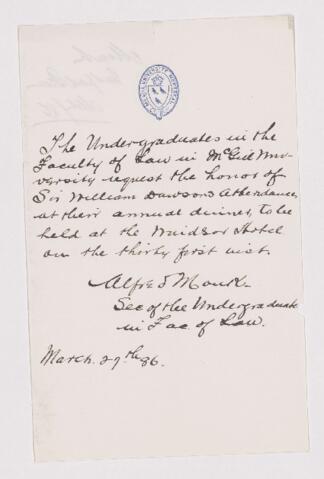 McGILL UNIVERSITY MONTREAL
The Undergraduates in the
Faculty of Law in McGill Uni-
versity request the honor of
Sir William Dawsons Attendance
at their annual dinner, to be
held at the Windsor Hotel
on the thirty first inst.
Alfred Monk
Sec of the Undergraduate
in Fac. of Law.
March. 29th 86.